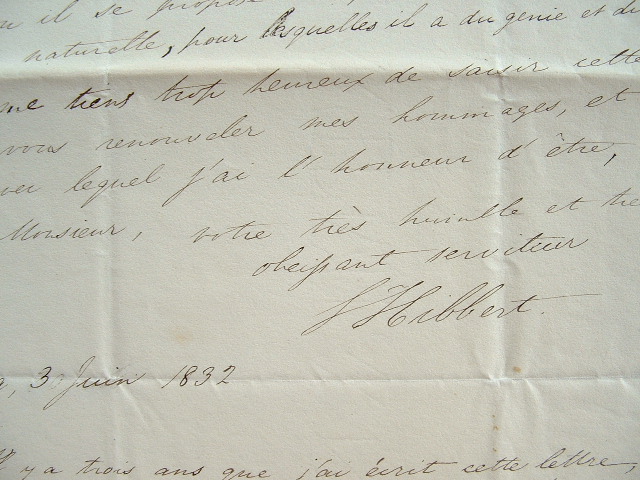 il se propose
naturelle, pour lesquelles il a du genie et du
me tiens trop heureux de saisir cette
vous renouveler mes hommages, et
lequel j'ai l'honneur d'être,
Monsieur, votre très humble et tre
obeissant serviteur
S Hibbert.
3 Juin 1832
y a trois ans que j'ai écrit cette lettre,